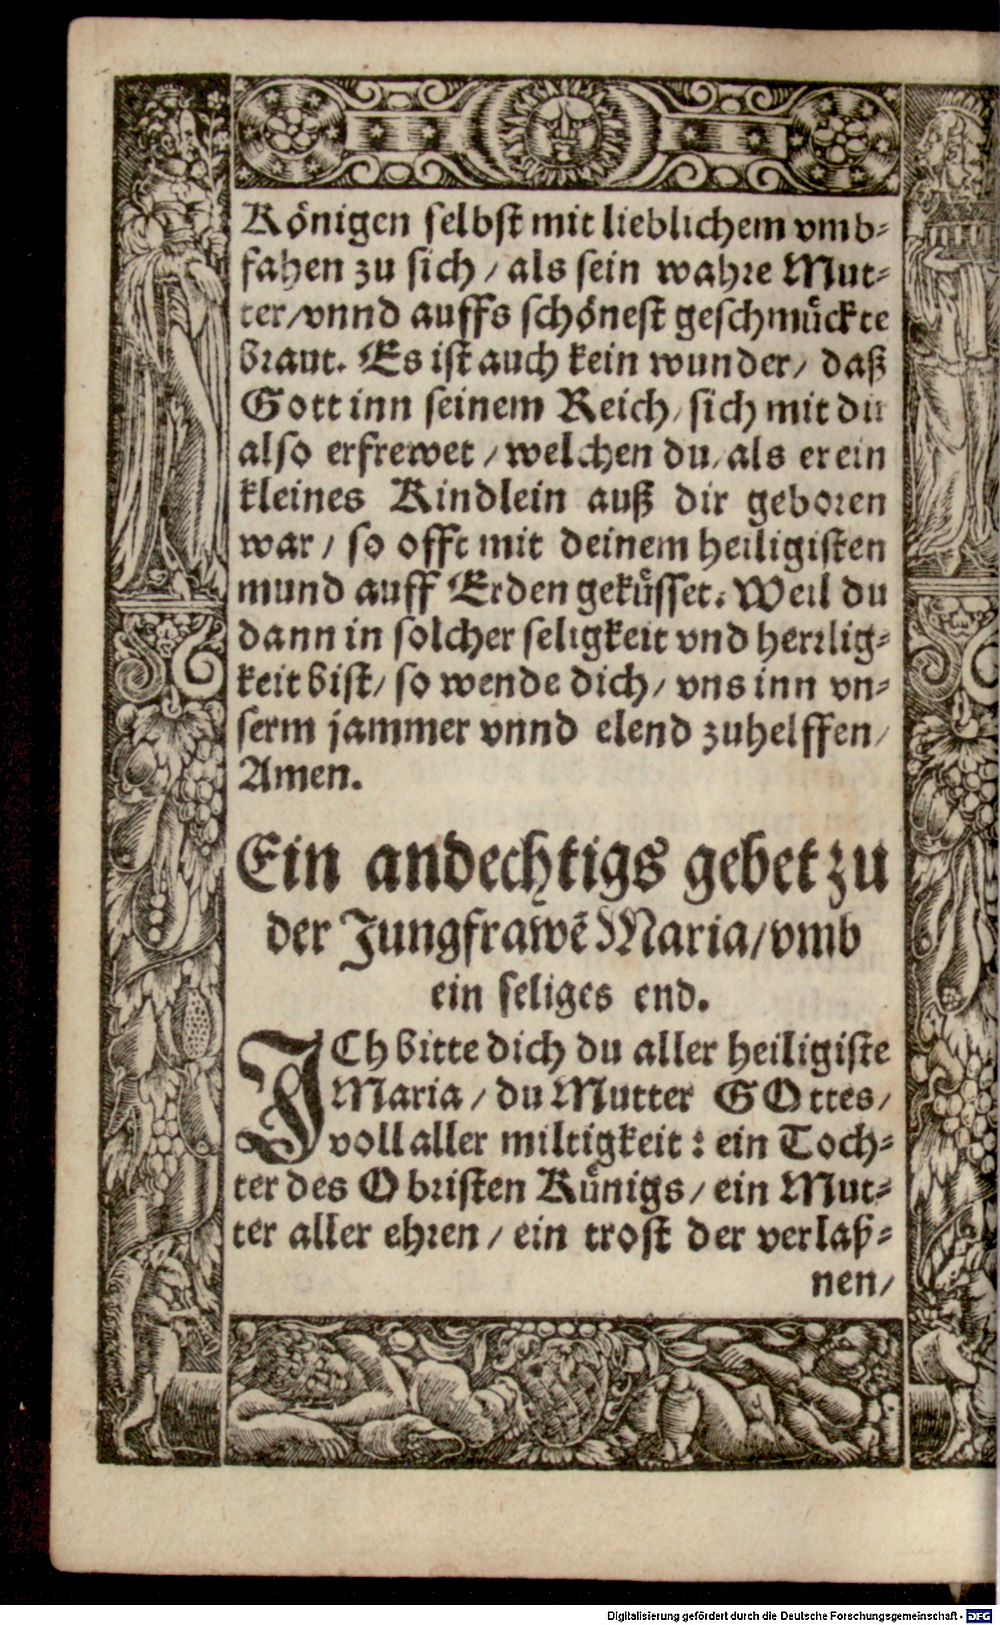 Königen selbst mit lieblichem vmb-
fahen zu sich / als sein wahre Mut-
ter/vnnd auffs schönest geschmückte
braut. Es ist auch kein wunder / daß
Gott inn seinem Reich / sich mit dir
also erfrewet / welchen du / als er ein
kleines Kindlein auß dir geboren
war / so offt mit deinem heiligisten
mund auff Erden geküsset. Weil du
dann in solcher seligkeit vnd herrlig-
keit bist / so wende dich / vns inn vn-
serm jammer vnnd elend zuhelffen /
Amen.
Ein andechtigs gebet zu
der Jungfrawẽ Maria / vmb
ein seliges end.
ICh bitte dich du aller heiligiste
Maria / du Mutter GOttes /
voll aller miltigkeit : ein Toch-
ter des Obristen Künigs / ein Mut-
ter aller ehren / ein trost der verlaß-
nen /
Digitalisierung gefördert durch die Deutsche Forschungsgemeinschaft - DFG